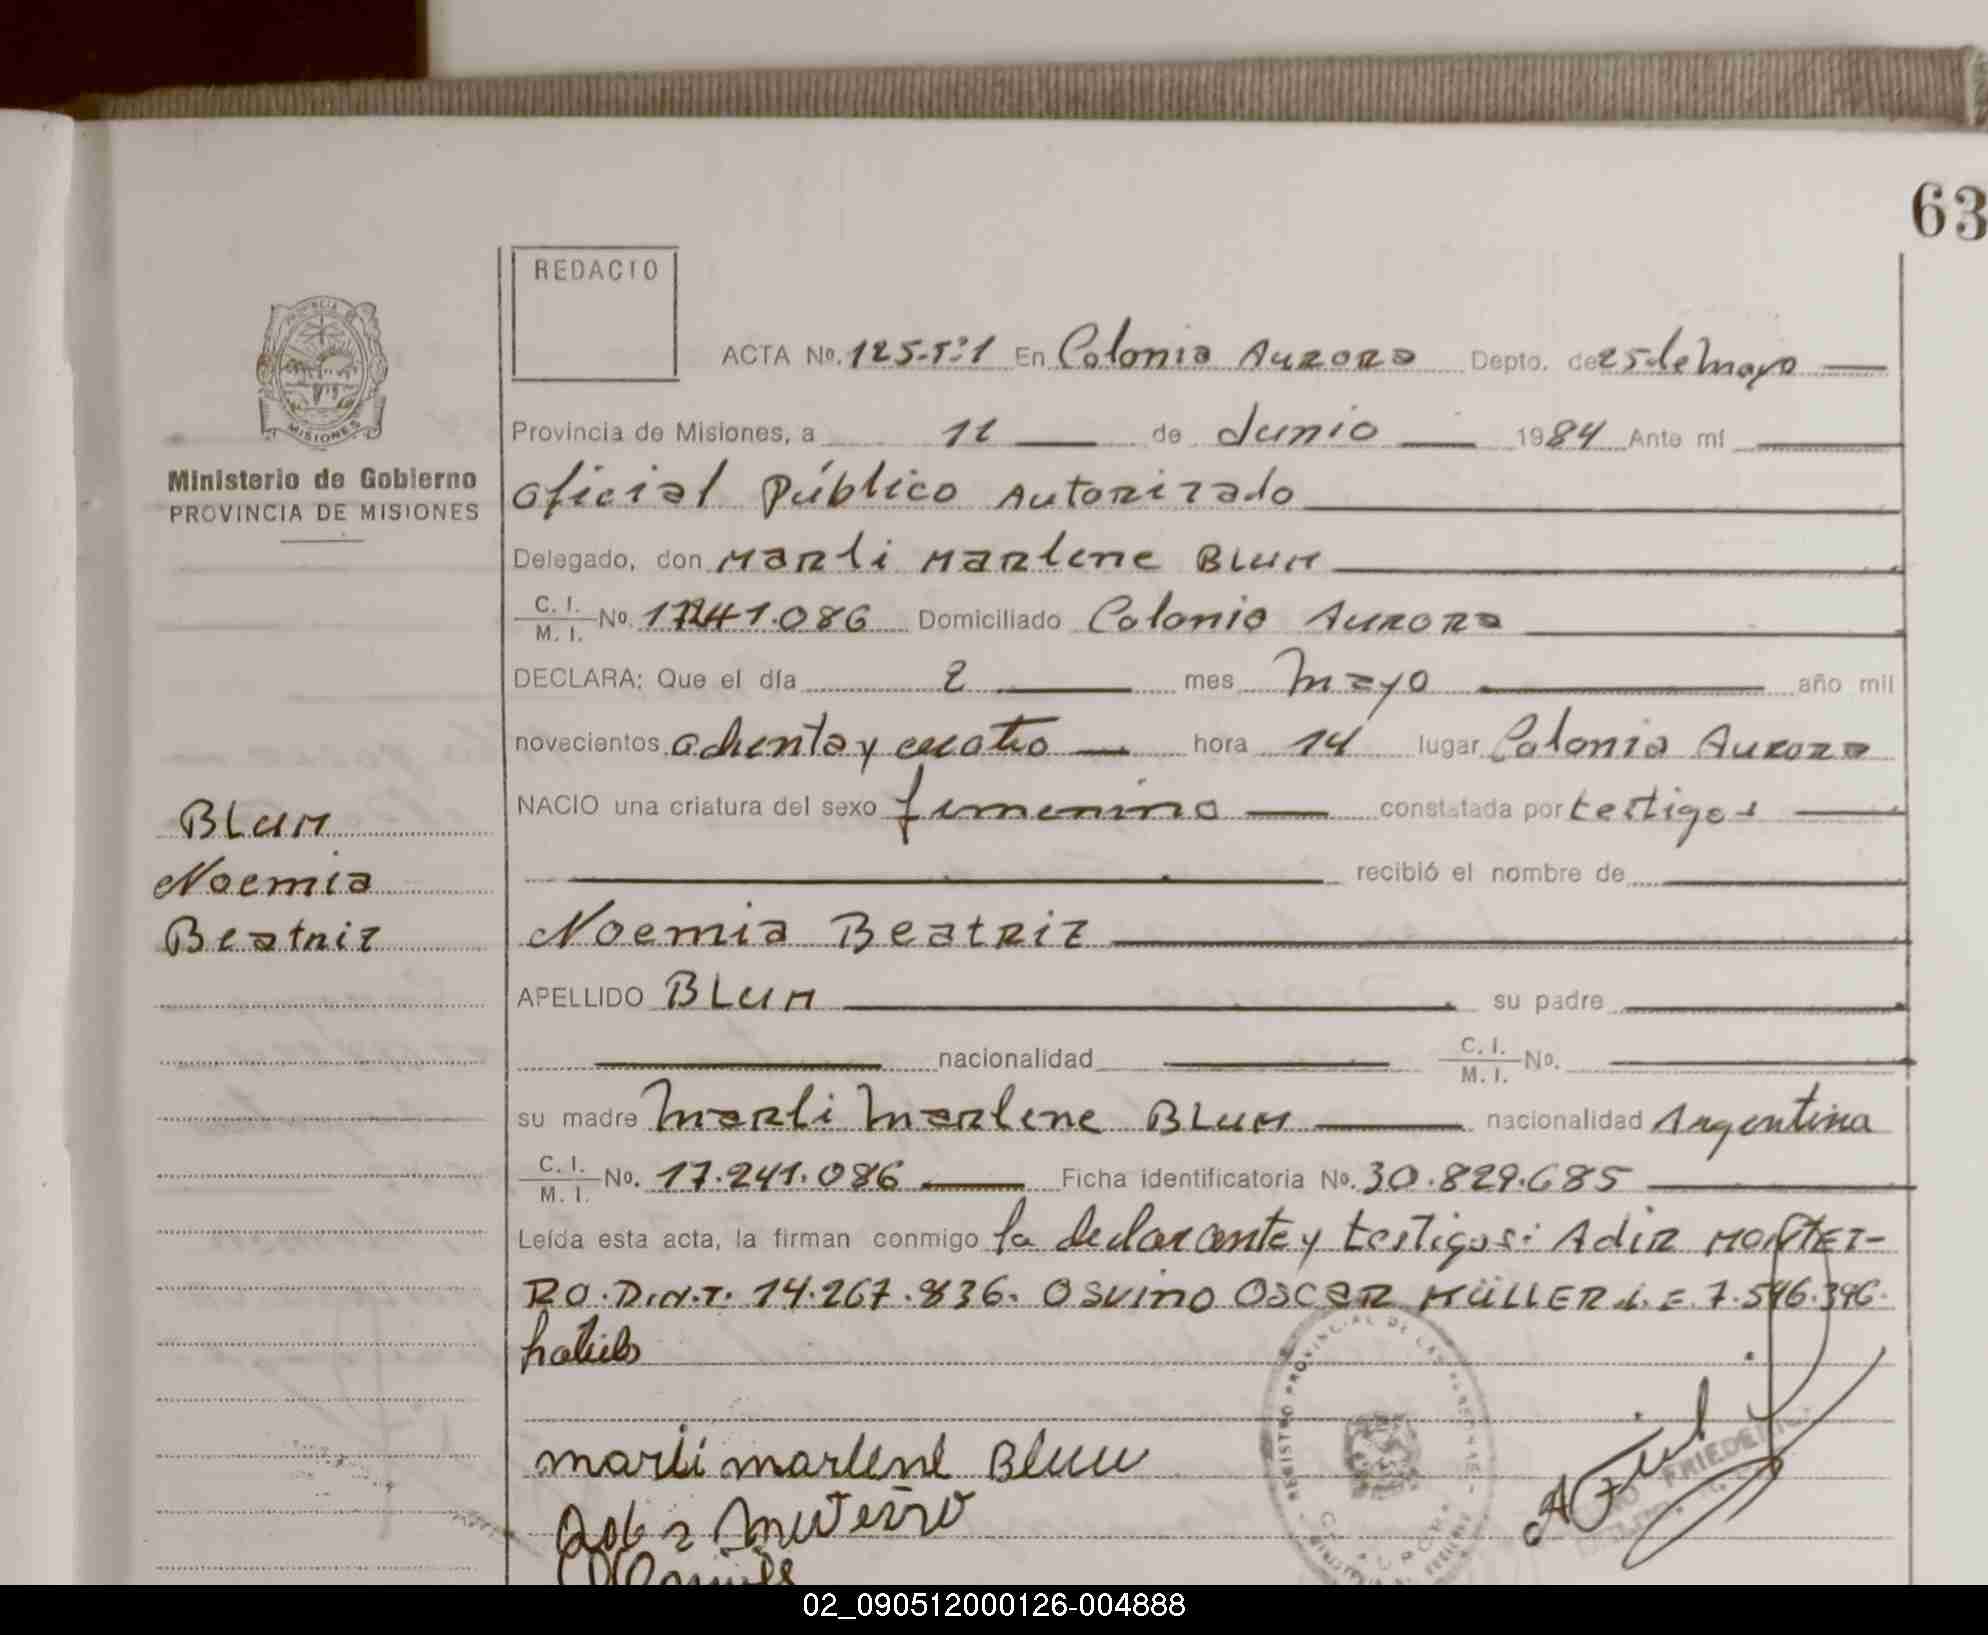 63
REDACTO
ACTA No. 125-Tº1 En Colonia Aurora Depto. de 25 de Mayo
Provincia de Misiones, a 11 de Junio 1984 Ante mí
Oficial Público Autorizado
Ministerio de Gobierno
PROVINCIA DE MISIONES
Delegado, don Marli Marlene BLUM
C. I.
M. I. No. 17241.086 Domiciliado Colonia Aurora
DECLARA: Que el día 2 mes Mayo año mil
novecientos ochenta y cuatro hora 14 lugar Colonia Aurora
NACIO una criatura del sexo femenino constatada por testigos
recibió el nombre de
BLUM
Noemia
Beatriz
Noemia Beatriz
APELLIDO BLUM su padre
nacionalidad C. I.
M. I. No.
su madre Marli Marlene BLUM nacionalidad Argentina
C. I.
M. I. No. 17.241.086 Ficha identificatoria No. 30.829.685
Leída esta acta, la firman conmigo la declarante y testigos: Adir MONTEI-
RO. D.N.I. 14.267.836. Osvino Oscar MÜLLER L.E. 7.546.396.
hábiles
marli marlene Blum
MISIONES
02_090512000126-004888